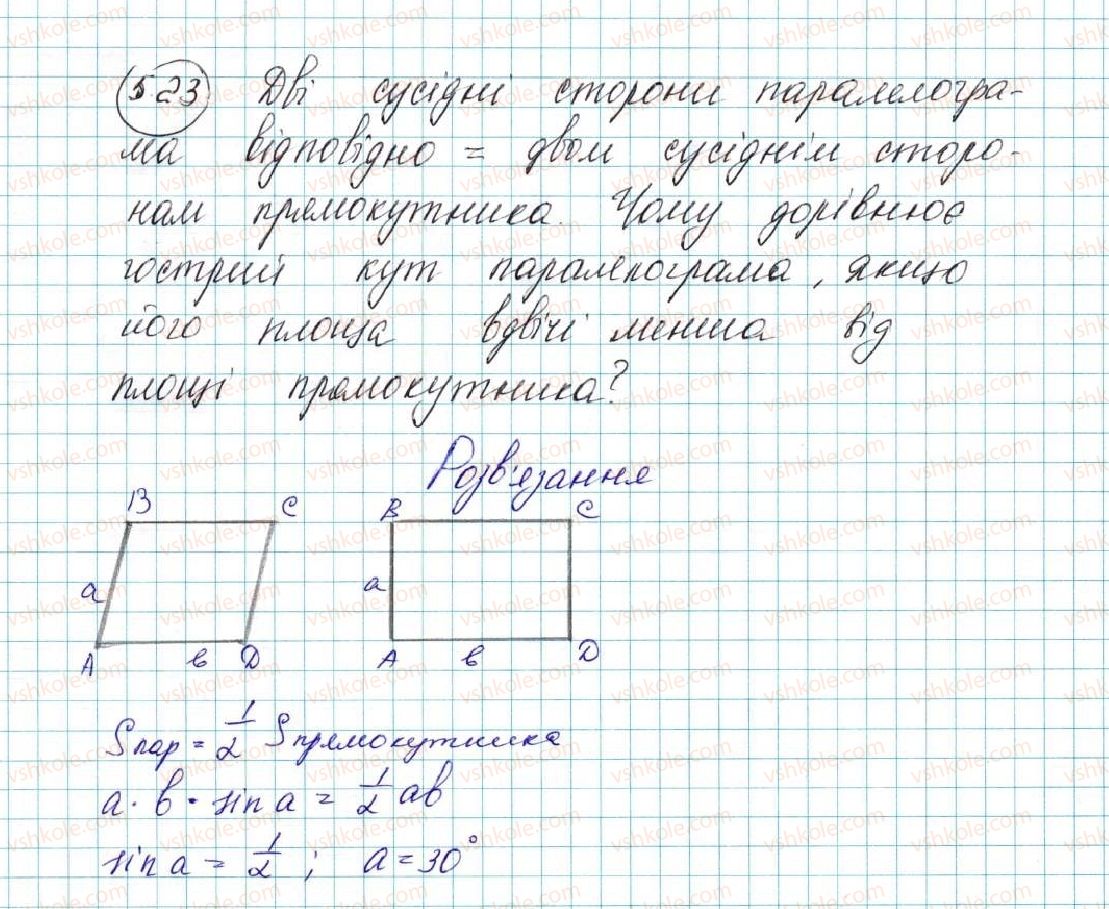 523 Дві сусідні сторони паралелогра-
ма відповідно = двом сусіднім сторо-
нам прямокутника. Чому дорівнює
гострий кут паралелограма, якщо
його площа вдвічі менша від
площі прямокутника?
Розв'язання
B C B C
a a
A в D A в D
Sпар = 1/2 Sпрямокутника
a · b · sin a = 1/2 ab
sin a = 1/2 ; a = 30°